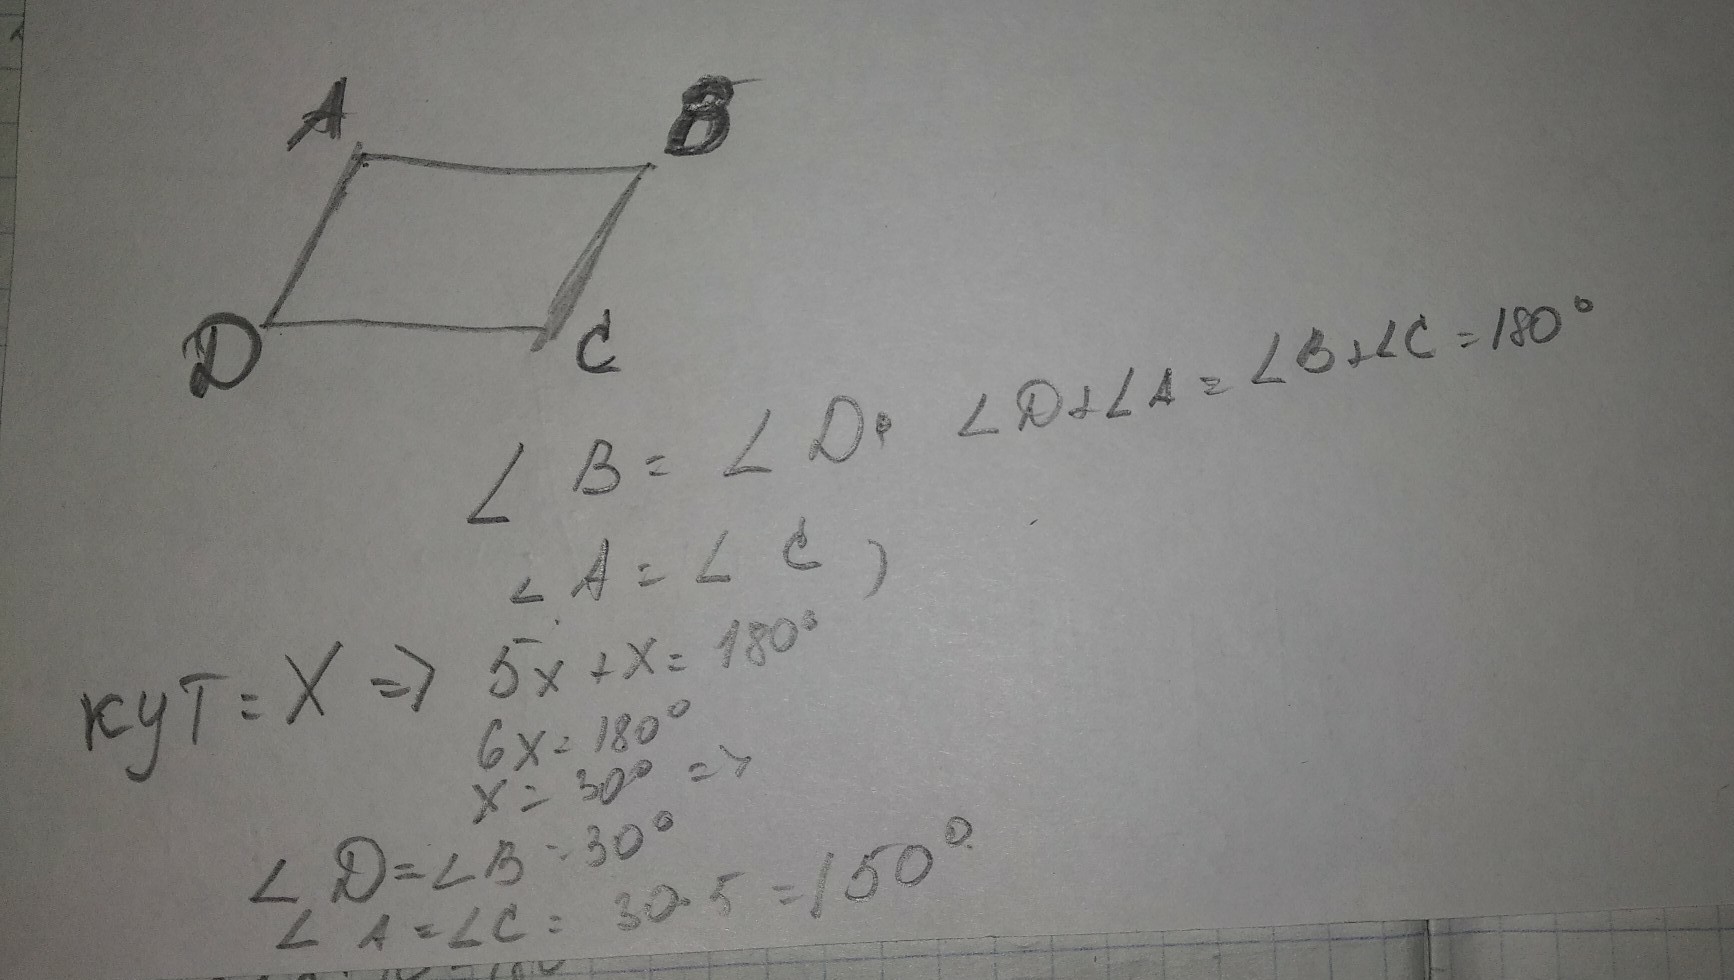 A B
D C
∠B = ∠D, ∠D+∠A = ∠B+∠C = 180°
∠A = ∠C )
кут = X => 5x + x = 180°
6x = 180°
x = 30° =>
∠D = ∠B = 30°
∠A = ∠C = 30·5 = 150°